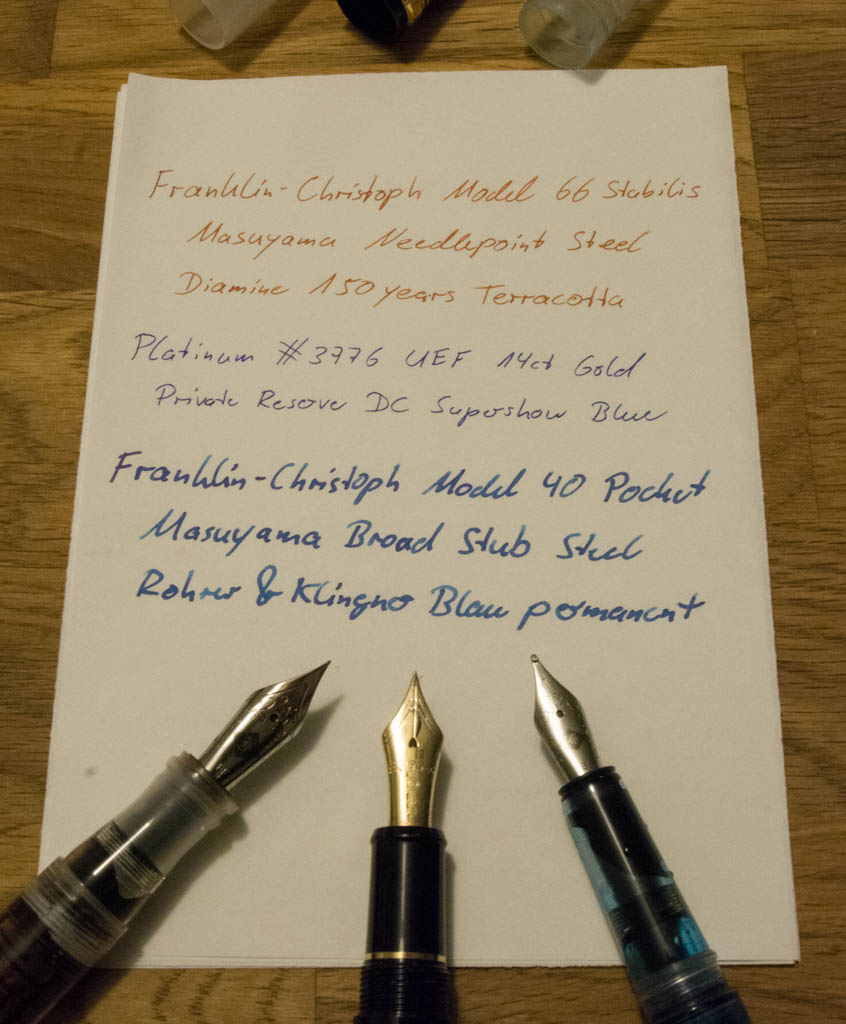 Franklin-Christoph Model 66 Stabilis
Masuyama Needlepoint Steel
Diamine 150 years Terracotta
Platinum #3776 UEF 14ct Gold
Private Reserve DC Supershow Blue
Franklin-Christoph Model 40 Pocket
Masuyama Broad Stub Steel
Rohrer & Klingner Blau permanent